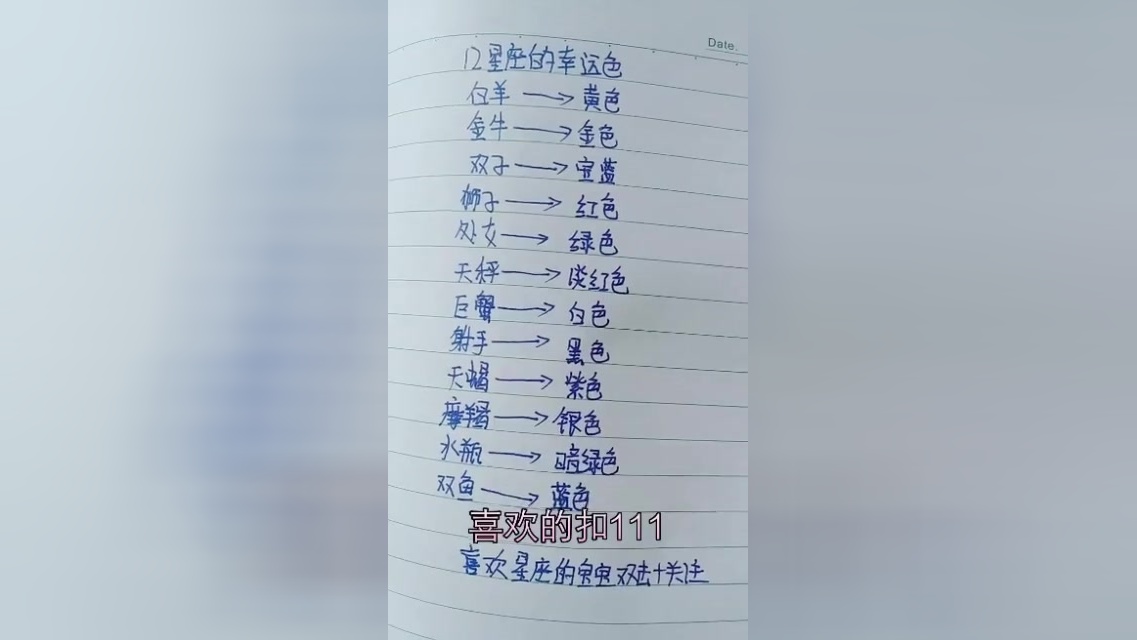 Date.
12星座的幸运色
白羊 → 黄色
金牛 → 金色
双子 → 宝蓝
狮子 → 红色
处女 → 绿色
天秤 → 淡红色
巨蟹 → 白色
射手 → 黑色
天蝎 → 紫色
摩羯 → 银色
水瓶 → 暗绿色
双鱼 → 蓝色
喜欢的扣111
喜欢星座的宝宝双击+关注